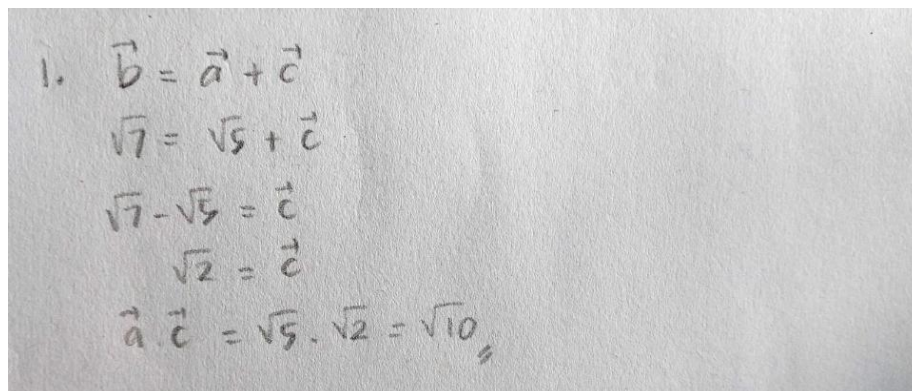 1. b⃗ = a⃗ + c⃗
√7 = √5 + c⃗
√7 - √5 = c⃗
√2 = c⃗
a⃗ . c⃗ = √5 . √2 = √10